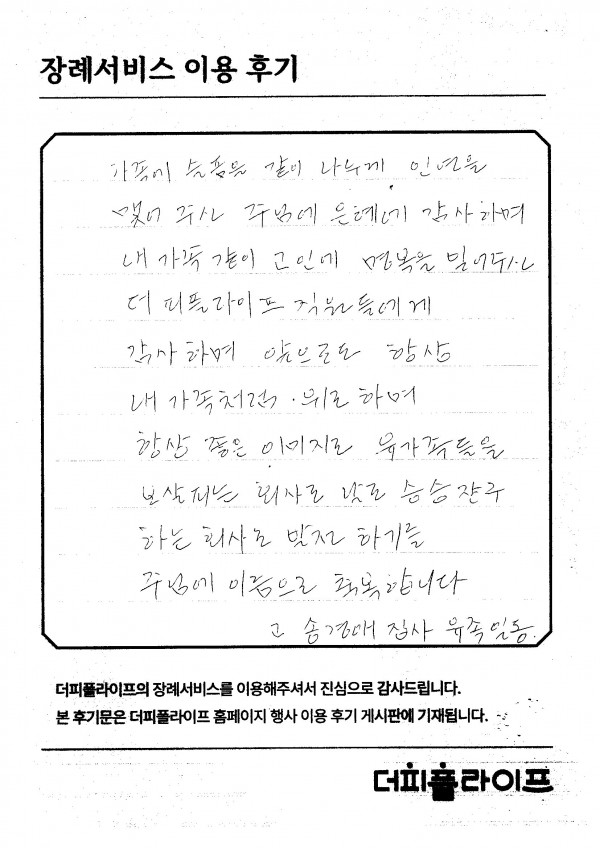 장례서비스 이용 후기
가족에 슬픔을 같이 나누게 인연을
맺어 주신 주님에 은혜에 감사하며
내 가족 같이 고인에 명복을 빌어주신
더 피플라이프 직원들에게
감사하며 앞으로도 항상
내 가족처럼 위로하며
항상 좋은 이미지로 유가족들을
보살피는 회사로 날로 승승장구
하는 회사로 발전 하기를
주님에 이름으로 축복합니다
고 송경애 집사 유족일동.
더피플라이프의 장례서비스를 이용해주셔서 진심으로 감사드립니다.
본 후기문은 더피플라이프 홈페이지 행사 이용 후기 게시판에 기재됩니다.
더피플라이프